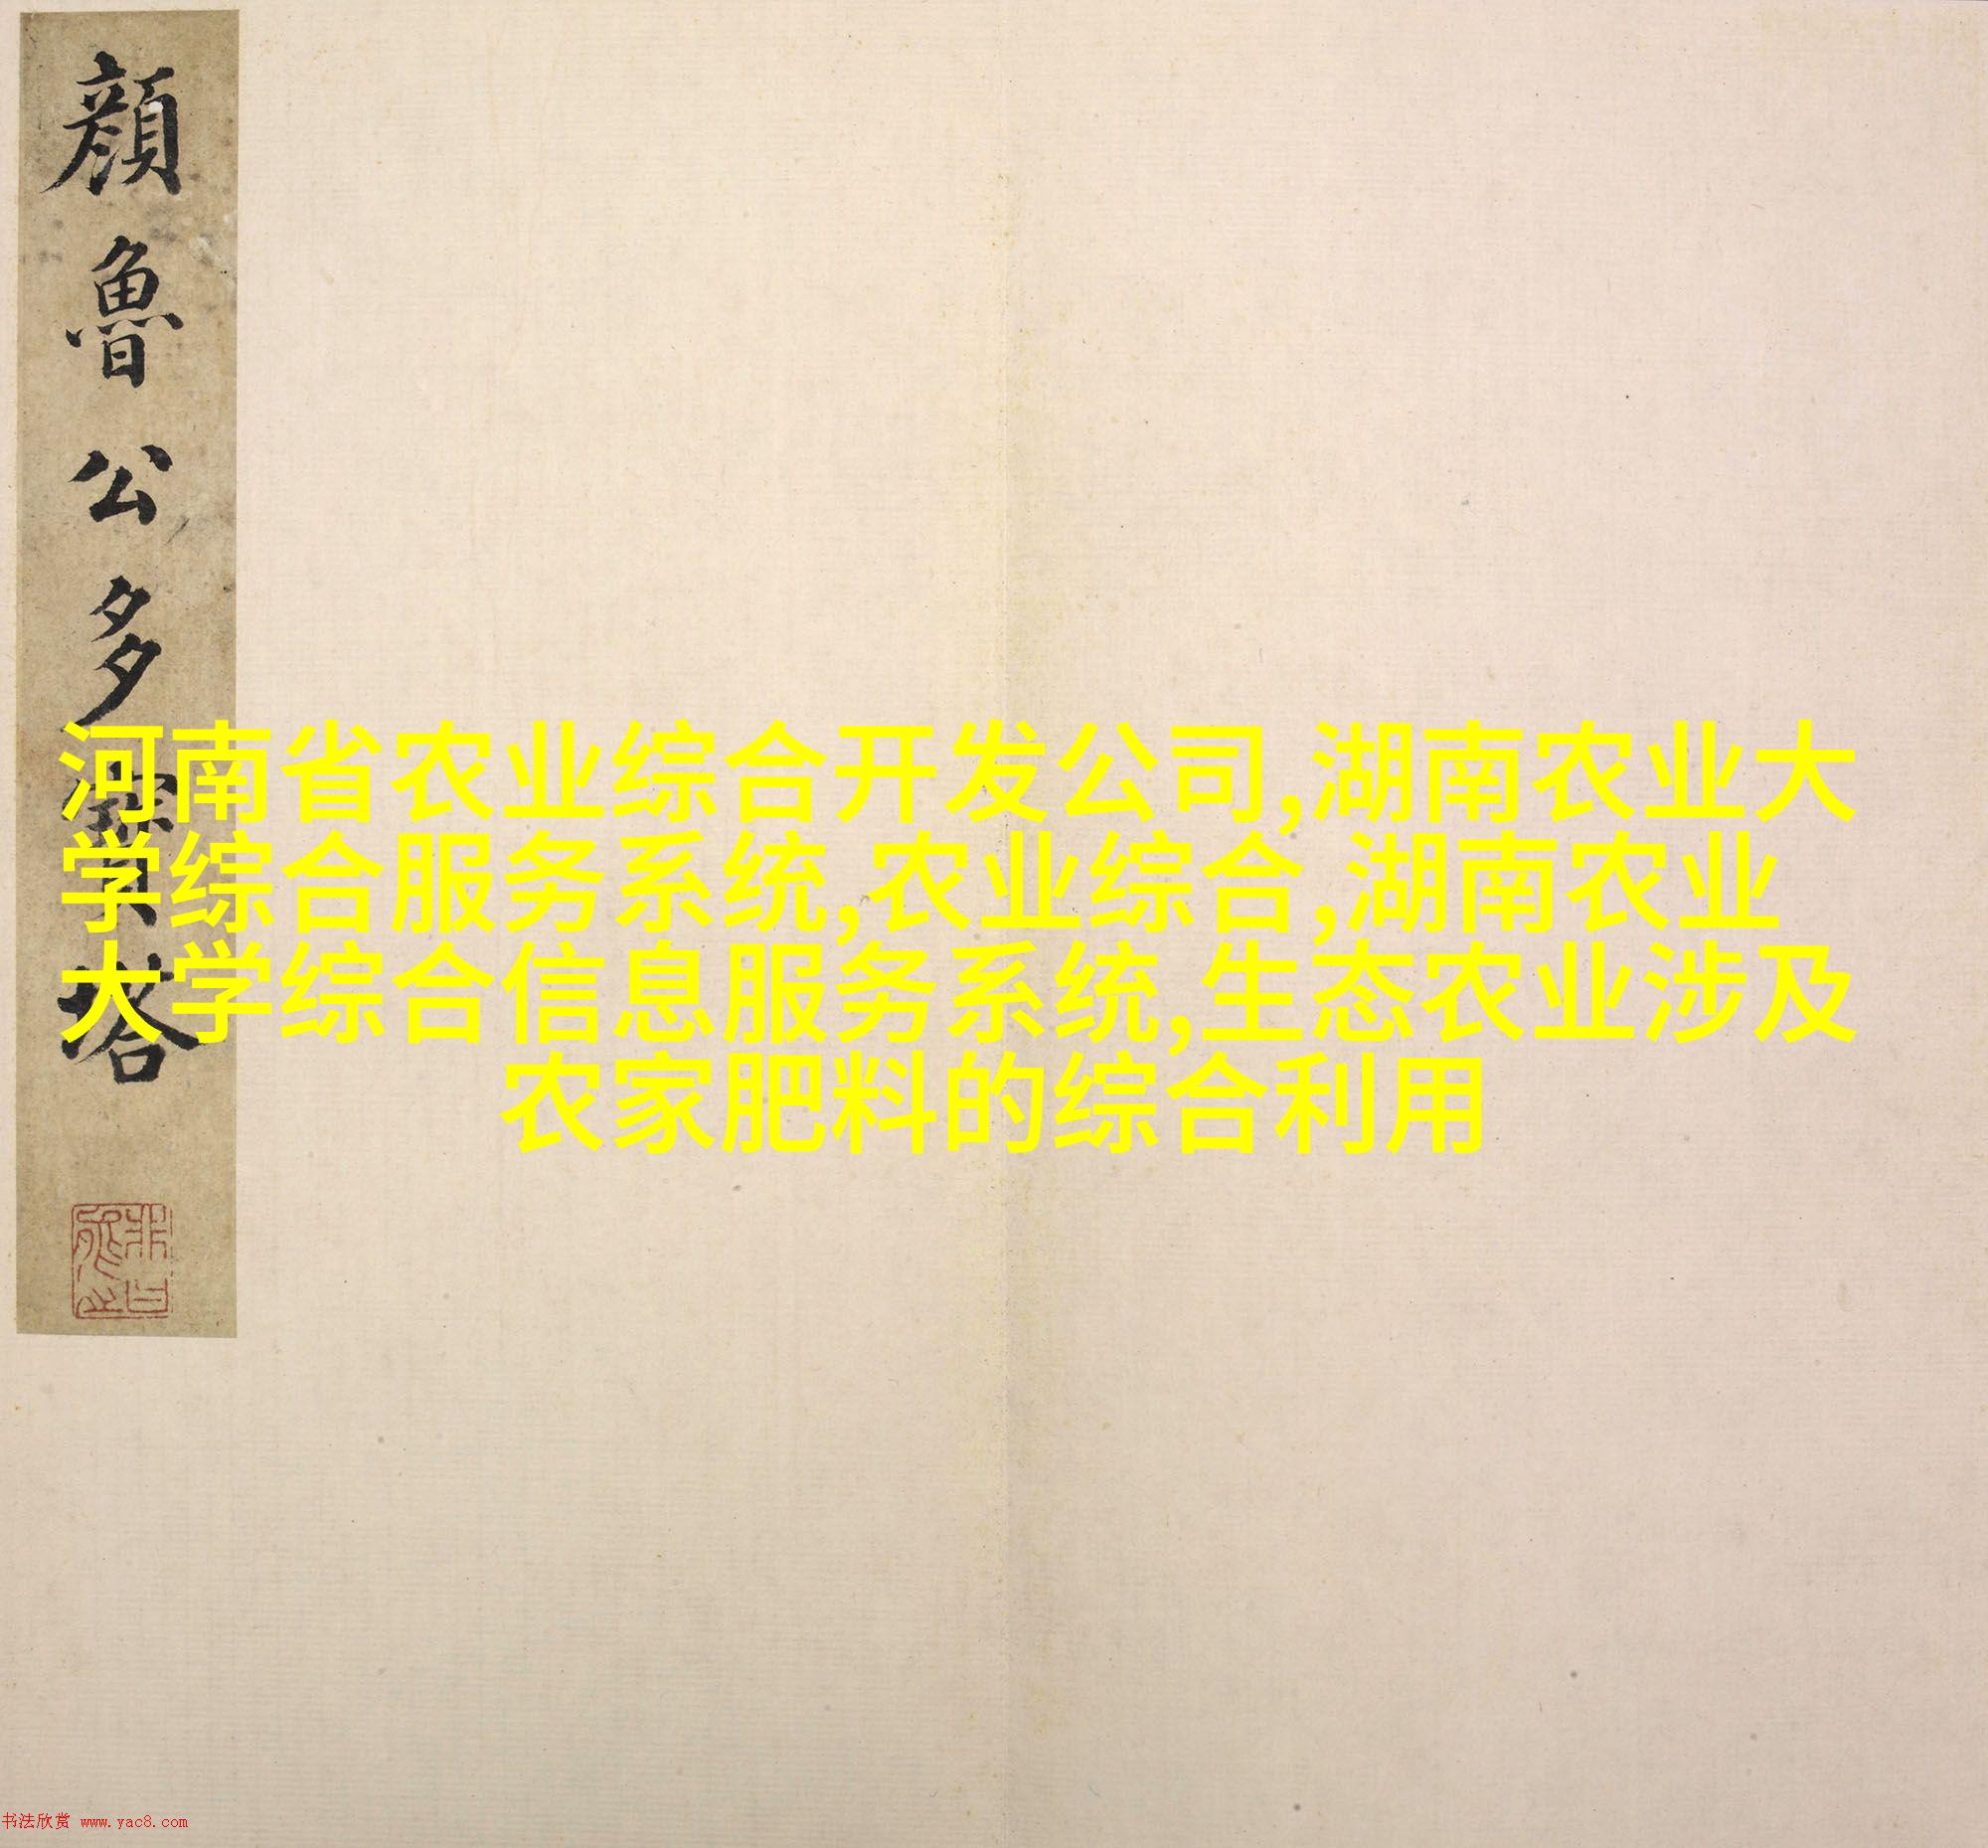 顔魯公多寶塔
河南省农业综合开发公司,湖南农业大
学综合服务系统,农业综合,湖南农业
大学综合信息服务系统,生态农业涉及
农家肥料的综合利用
书法欣赏 www.yac8.com